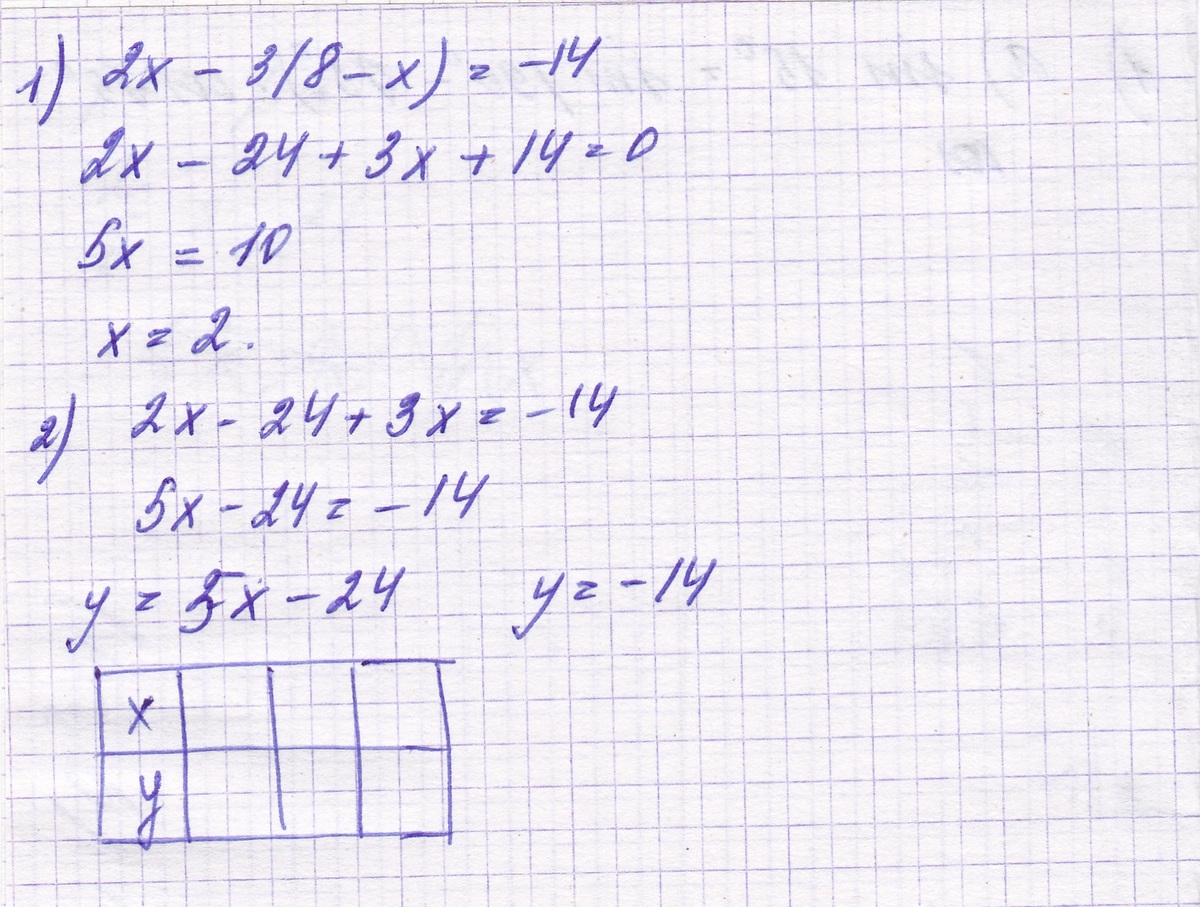 1) 2x - 3(8 - x) = -14
2x - 24 + 3x + 14 = 0
5x = 10
x = 2.
2) 2x - 24 + 3x = -14
5x - 24 = -14
y = 5x - 24 y = -14
x
y